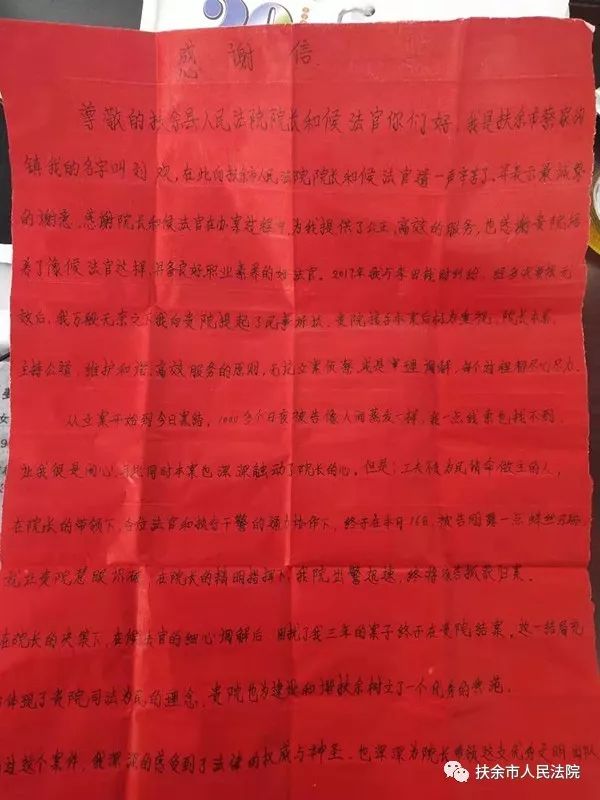 感谢信
尊敬的扶余县人民法院院长和候法官你们好，我是扶余市蔡家沟
镇我的名字叫刘欢，在此向扶余市人民法院院长和候法官道一声辛苦了，并表示最诚挚
的谢意。感谢院长和候法官在办案过程中，为我提供了公正，高效的服务，也感谢贵院培
养了像候法官这样，具备良好职业素养的好法官。2017年我与李田
效后，我万般无奈之下我向贵院提起了民事诉讼。贵院接手本案后极为重视，院长本着，
主持公道，维护和谐，高效服务的原则，无论立案侦察，或是审理调解，每个过程都尽心尽力。
从立案开始到今日案结，1000多个日夜被告像人间蒸发一样，我一点线索也找不到。
让我很是闹心，与此同时本案也深深触动了院长的心。但是；工夫不负为民请命做主的人，
在院长的带领下，各位法官和执行干警的通力协作下，终于在本月16日，被告刚露一点蛛丝马迹，
就让贵院慧眼识破，在院长的精明指挥下，我院出警迅速，终将被告抓获归案。
在院长的决策下，在候法官的细心调解后，困扰了我三年的案子终于在贵院结案。这一结局充
体现了贵院司法为民的理念，贵院也为建设和谐扶余树立了一个优秀的典范。
过这个案件，我深深的感受到了法律的权威与神圣。也深深为院长带领这支优秀文明团队
扶余市人民法院